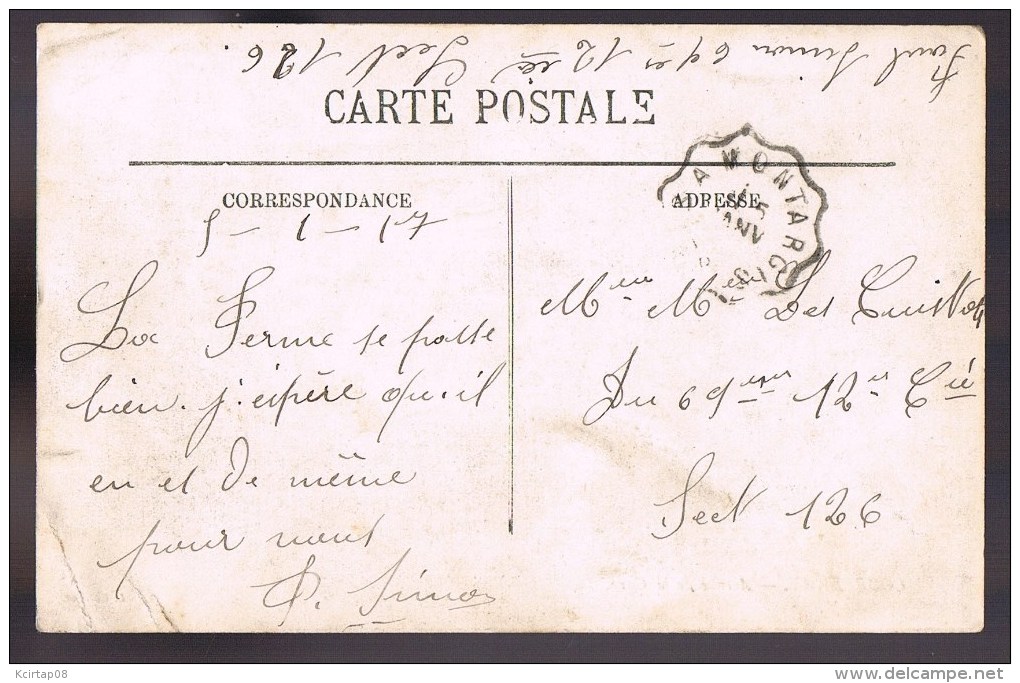 Paul Simon 69e 12e Cie Sect 126
CARTE POSTALE
CORRESPONDANCE
ADRESSE
A MONTARGIS
5 JANV
5 - 1 - 17
La Ferme se passe
bien. j'espère qu'il
en et de même
pour nout
P. Simon
Mrs Les Cuistots
Du 69 12e Cie
Sect 126
Kcirtap08
www.delcampe.net